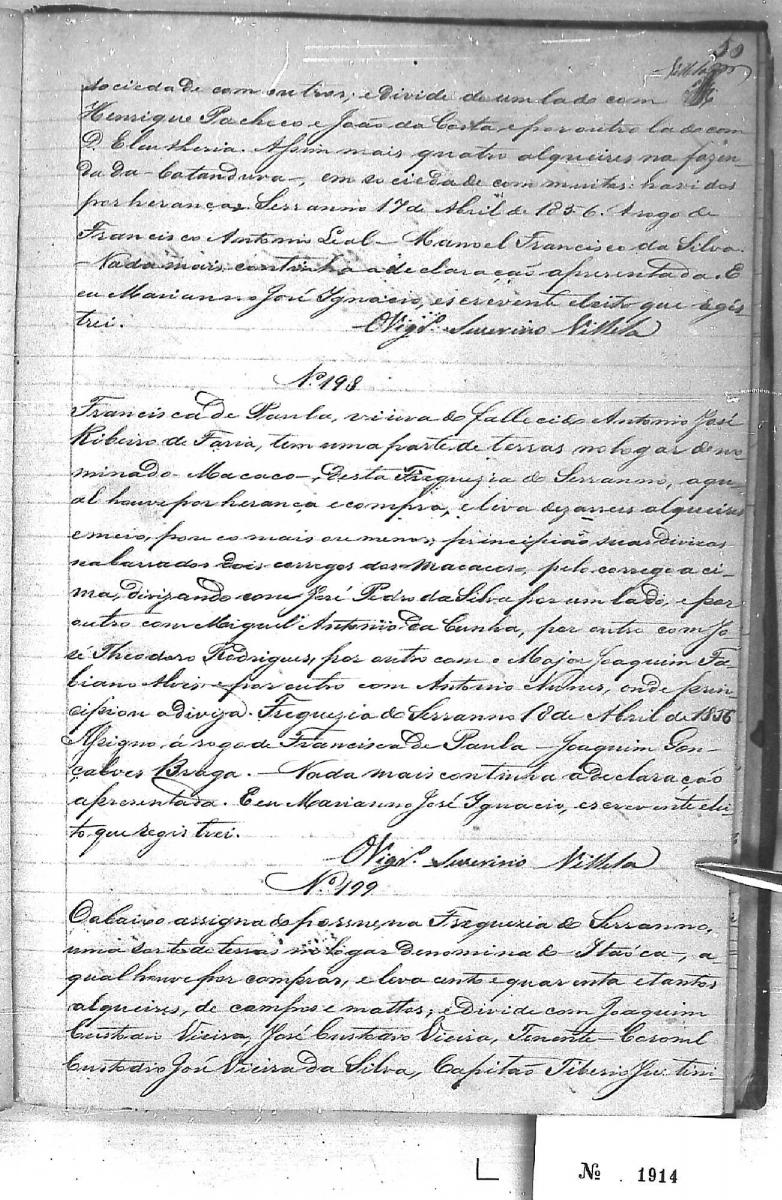 50
Villela
sociedade com outros; e divide de um lado com
Henrique Pacheco e João da Costa, e por outro lado com
D. Eleutheria. Assim mais quatro alqueires na fazen-
da da Catanduva, em sociedade com muitos: havidos
por herança. Serranno 17 de Abril de 1856. A rogo de
Francisco Antonio Leal - Manoel Francisco da Silva.
- Nada mais continha a declaração apresentada. E
eu Marianno José Ignacio, escrevente eleito que regis
trei. O Vigr.º Severino Villela
Nº 198
Francisca de Paula, viuva do fallecido Antonio José
Ribeiro de Faria, tem uma parte de terras no logar deno
minado - Macaco -, desta Freguezia do Serranno, a qu
al houve por herança e compra, e leva dezasseis alqueires
e meio, pouco mais ou menos; principião suas divizas
na barra dos dois corregos dos Macacos, pelo corrego a ci-
ma, divizando com José Pedro da Silva por um lado, e por
outro com Miguel Antonio da Cunha, por outro com Jo-
sé Theodoro Rodrigues, por outro com o Major Joaquim Fa
biano Alvis, e por outro com Antonio Nunes, onde prin-
cipiou a diviza. Freguezia do Serranno 18 de Abril de 1856
Assigno, á rogo de Francisca de Paula - Joaquim Gon-
çalves Braga. - Nada mais continha a declaração
apresentada. E eu Marianno José Ignacio, escrevente elei-
to que registrei.
O Vigr.º Severino Villela
Nº 199
O abaixo assignado possue na Freguezia do Serranno,
uma sorte de terras no logar denominado - Itaóca -, a
qual houve por compras, e leva cento e quarenta e tantos
alqueires, de campos e mattos; e divide com Joaquim
Custodio Vieira, José Custodio Vieira, Tenente-Coronel
Custodio José Vieira da Silva, Capitão Tiberio
Nº 1914